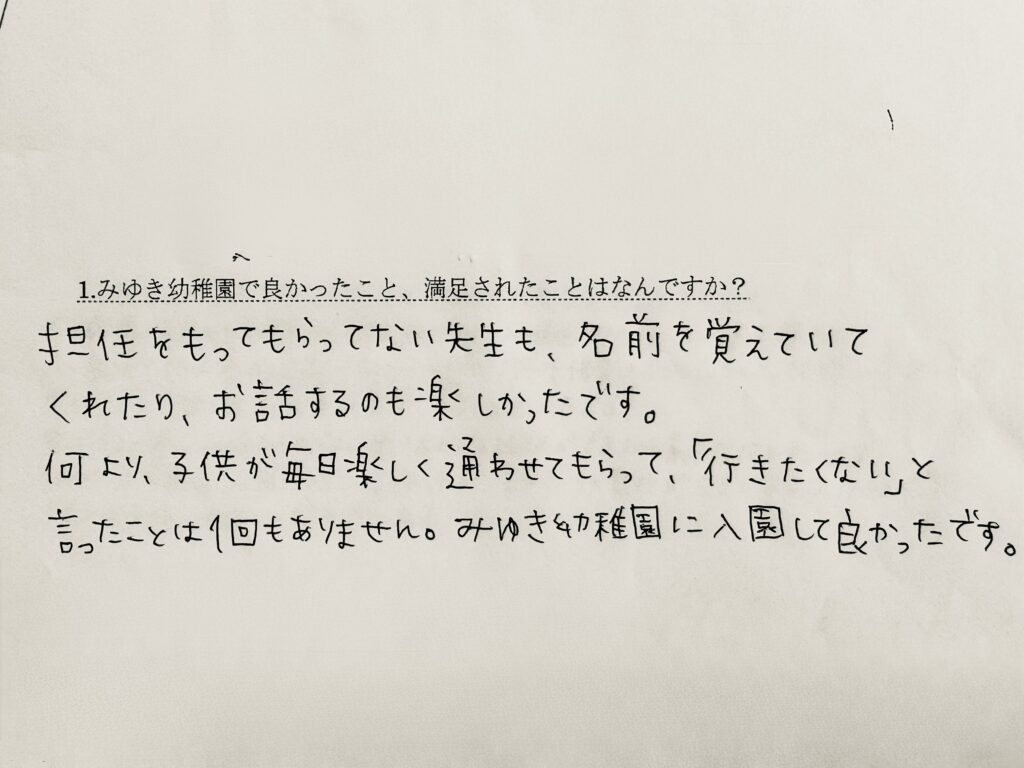 1.みゆき幼稚園で良かったこと、満足されたことはなんですか？
担任をもってもらってない先生も、名前を覚えていて
くれたり、お話するのも楽しかったです。
何より、子供が毎日楽しく通わせてもらって、「行きたくない」と
言ったことは1回もありません。みゆき幼稚園に入園して良かったです。